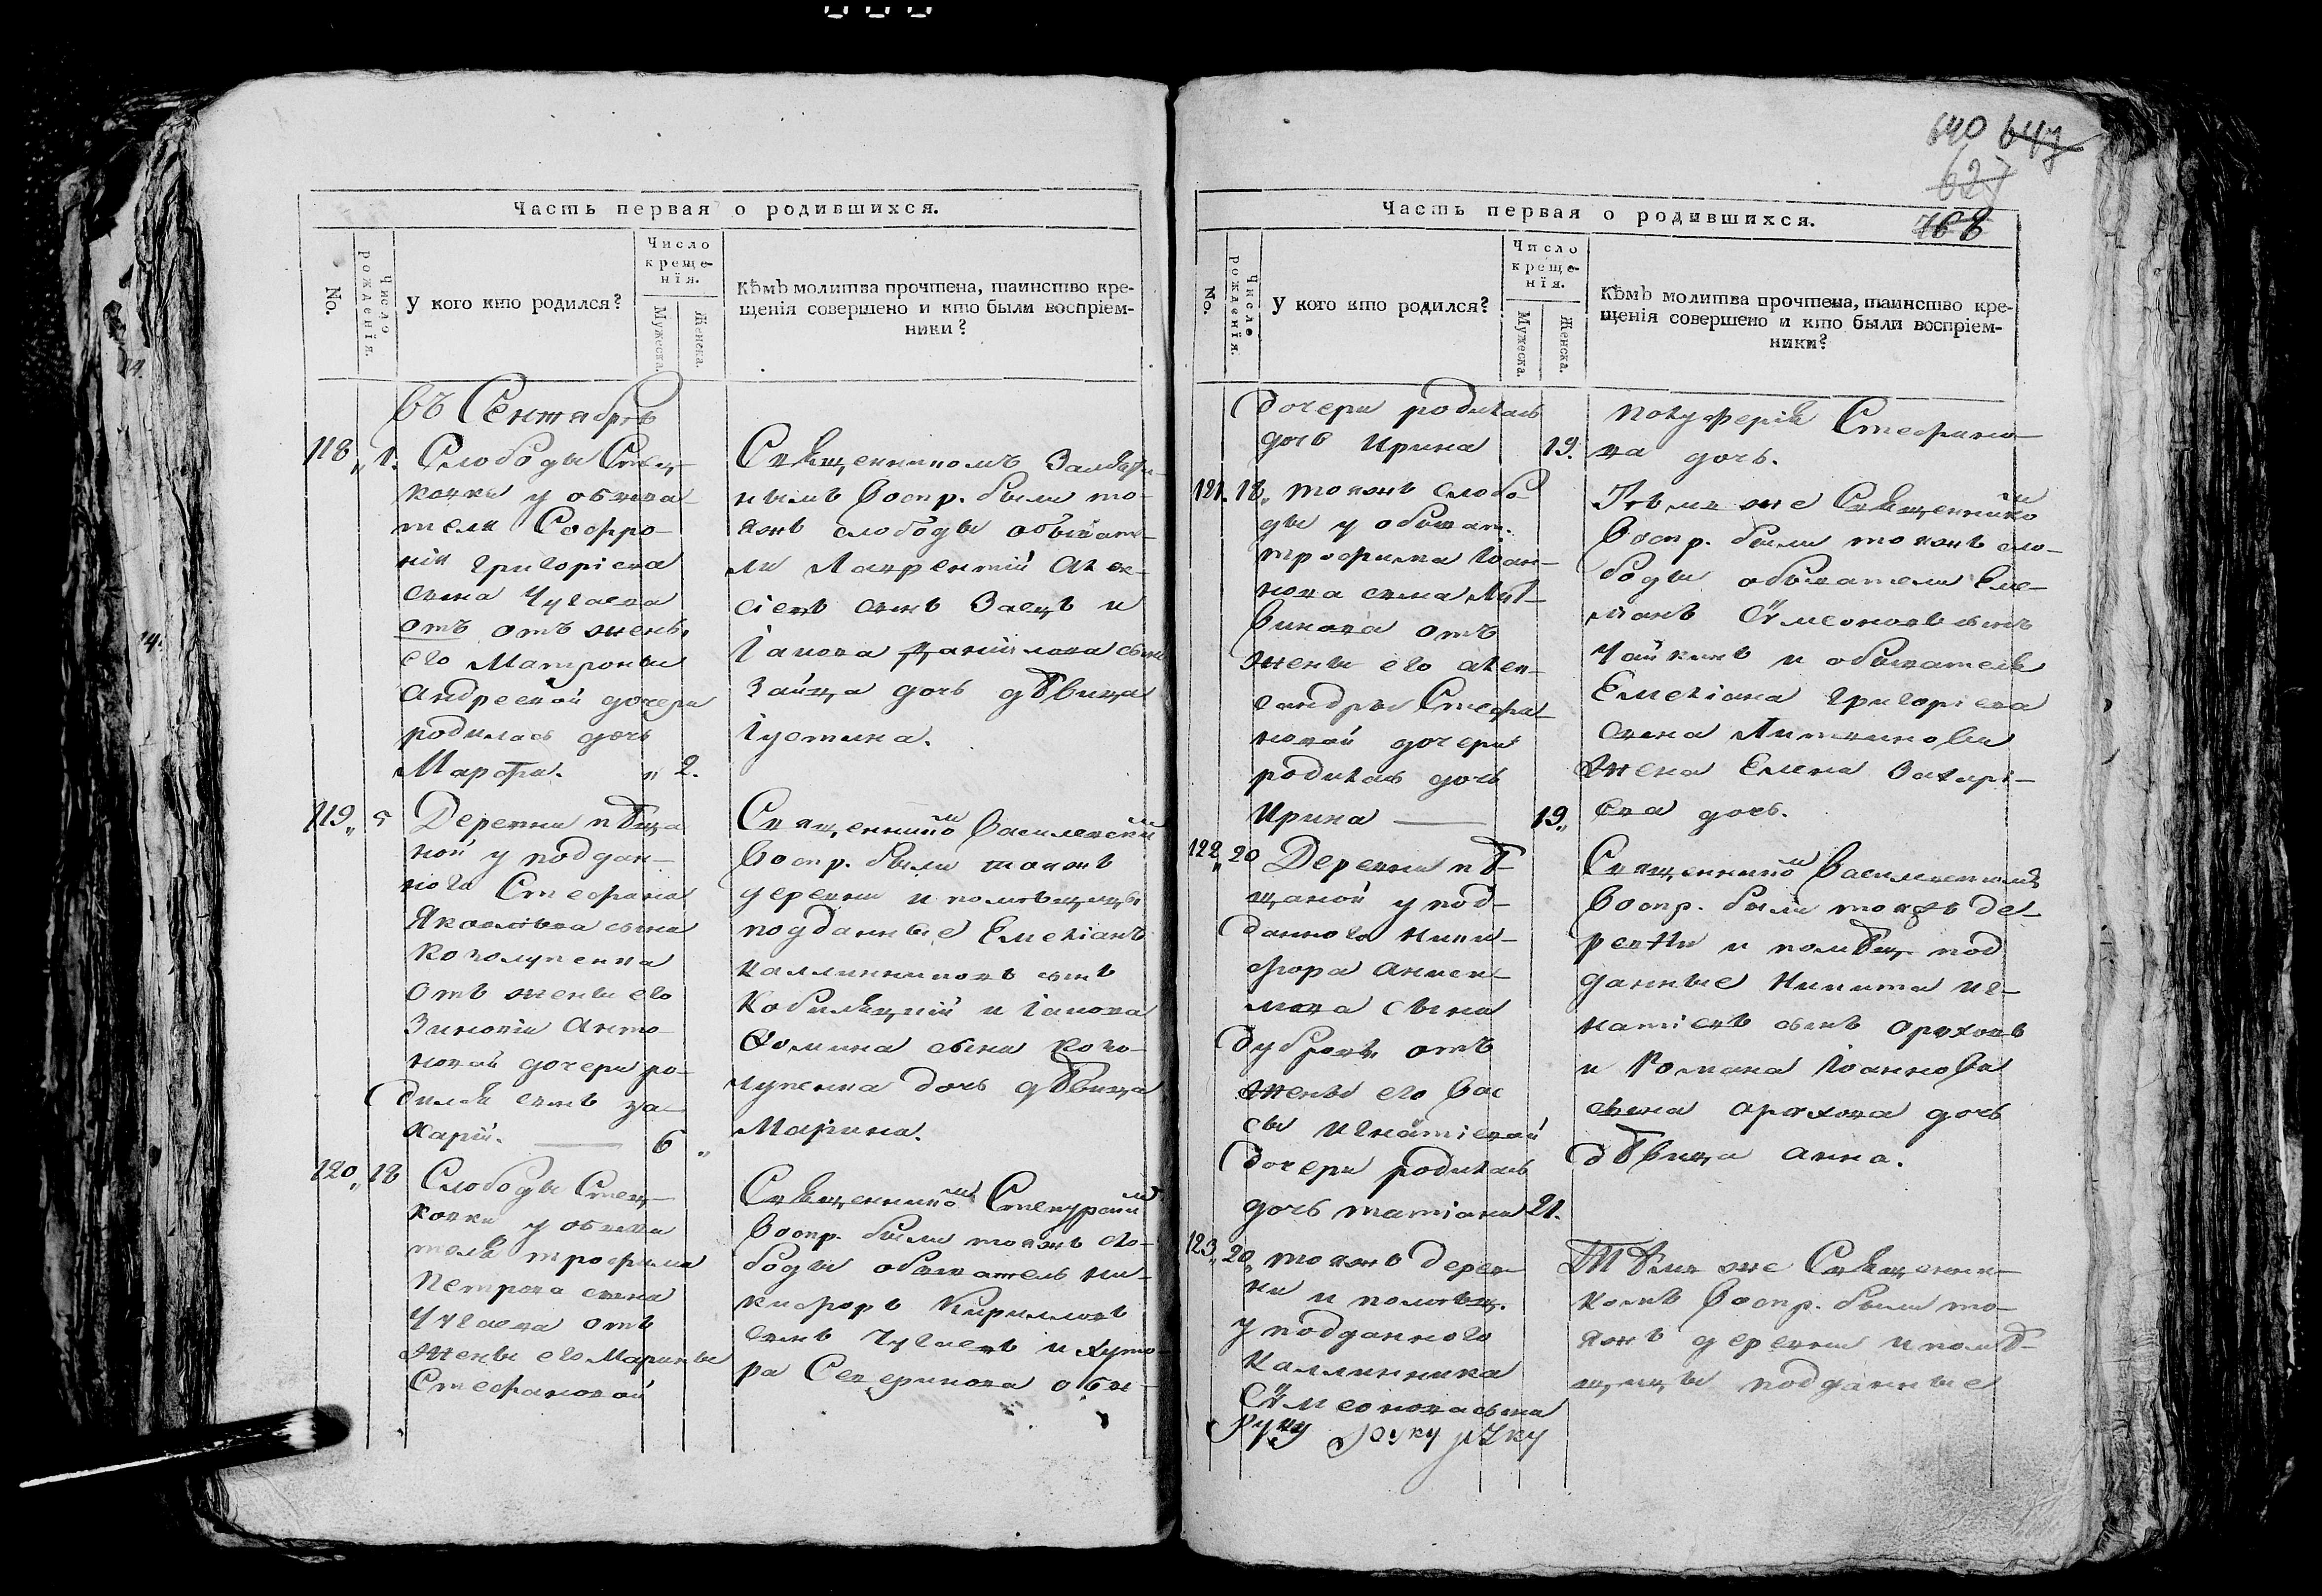 Часть первая о родившихся.
No.
Число рожденїя.
У кого кто родился?
Число креще-
нїя.
Мужеска.
Женска.
Кѣмъ молитва прочтена, таинство кре-
щенїя совершено и кто были воспрїем-
ники?
Въ Сентябрѣ
118„ 1. Слободы Стец-
ковки у обыва
теля Софро-
нїя Григорїева
сына Чугаева
отъ отъ жены
его Матроны
Андреевой дочери
родилась дочь
Марѳа. „ 2.
Священникомъ
нымъ Воспр. были то-
яжъ слободы обывате-
ли Лаврентїй Алек-
сїевъ сынъ Заецъ и
Іакова Данїилова сына
Зайца дочь дѣвица
Іустина.
119„ 5 Деревни пѣща
ной у поддан-
ного Стефана
Яковлева сына
Коголупенка
отъ жены его
Зиновїи Анто-
новой дочери ро-
дился сынъ За-
харїй. — 6 „
Священнико Василевскимъ
Воспр. были тояжъ
деревни и помѣщицы
подданные Емелїанъ
Каллиниковъ сынъ
Кобиляцкїй и Іакова
Ѳомина сына Кого-
лупенка дочь дѣвица
Марина.
120„ 18 Слободы Стец-
ковки у обыва
теля Трофима
Петрова сына
Чугаева отъ
жены его Марины
Стефановой
Священнико
Воспр. были тояжъ сло-
боды обыватель Ни-
кифоръ Кирилловъ
сынъ Чугаевъ и хуто-
ра Северинова обы-
640 647
627
768
Часть первая о родившихся.
No.
Число рожденїя.
У кого кто родился?
Число креще-
нїя.
Мужеска.
Женска.
Кѣмъ молитва прочтена, таинство кре-
щенїя совершено и кто были воспрїем-
ники?
дочери родилась
дочь Ирина 19.
Стефано-
ва дочь.
121. 18„ тояжъ слобо-
ды у обыват.
Трофима Іоан-
нова сына Лит-
винова отъ
жены его Алек-
сандры Стефа-
новой дочери
родилась дочь
Ирина — 19„
Тѣмъ же Священнико
Воспр. были тояжъ сло-
боды обыватели
Сѵмеоновъ сынъ
Чайкинъ и обыватель
Емелїана Григорїева
сына Литвинова
жена Елена Захарї-
ева дочь.
122„ 20 Деревни пѣ-
щаной у под-
данного Ники-
фора
мова сына
Дуброви отъ
жены его Вас
сы Игнатїевой
дочери родилась
дочь Татїана 21.
Священнико
Воспр. были тояжъ де-
ревни и помѣщ. под
данные Никита Иг-
натїевъ сынъ Ореховъ
и Романа Іоаннова
сына Орехова дочь
дѣвица Анна.
123„ 20„ тояжъ дерев-
ни и помѣщ.
у подданного
Каллиника
Сѵмеонова сына
Тѣмъ же Священни-
комъ Воспр. были то-
яжъ деревни и помѣ-
щицы подданные
руку